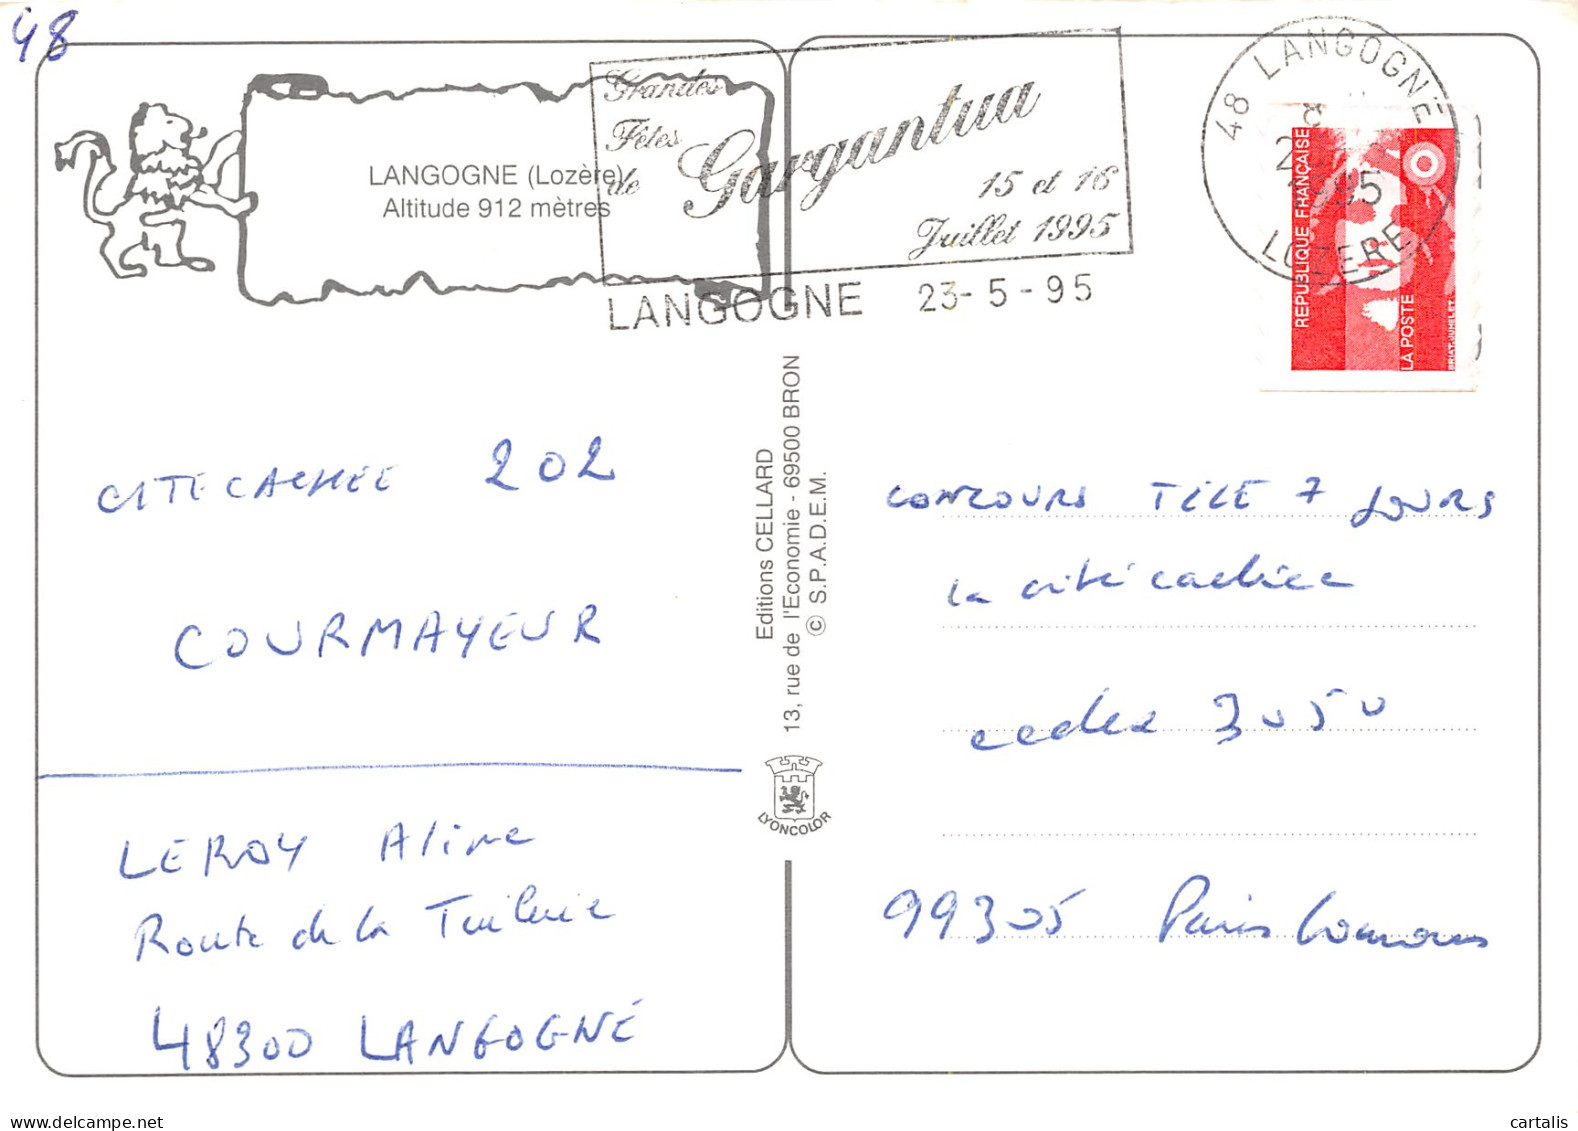 48
LANGOGNE (Lozère)
Altitude 912 mètres
Grandes
Fêtes
de
Gargantua
15 et 16
Juillet 1995
LANGOGNE 23-5-95
48 LANGOGNE
1995
LOZERE
REPUBLIQUE FRANÇAISE
LA POSTE
BRIAT.JUMELET
CITE CACHEE 202
COURMAYEUR
LEROY Aline
Route de la Tuilerie
48300 LANGOGNE
Editions CELLARD
13, rue de l'Economie - 69500 BRON
© S.P.A.D.E.M.
LYONCOLOR
CONCOURS TELE 7 JOURS
la cité cachée
cedex 3050
99305 Paris Concours
cartalis